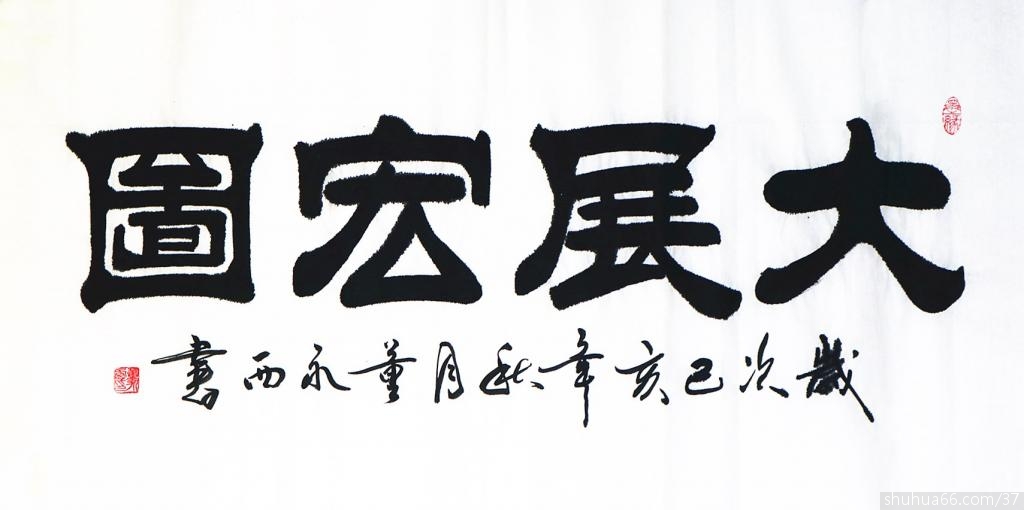 大展宏圖
歲次己亥年秋月董永西書
shuhua66.com/37